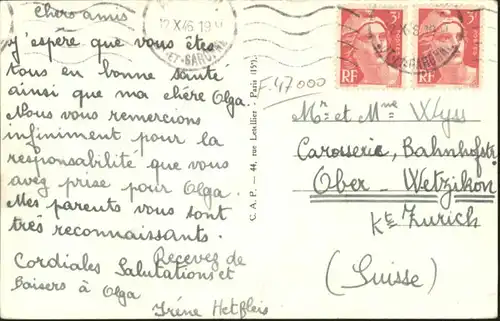 Chers amis
J'espère que vous êtes
tous en bonne santé
ainsi que ma chère Olga.
Nous vous remercions
infiniment pour la
responsabilité que vous
avez prise pour Olga.
Mes parents vous sont
très reconnaissants.
Recevez de
Cordiales Salutations et
baisers à Olga
Irène Hetfleis
C. A. P. — 44, rue Letellier - Paris (15e)
12 X 46
ET-GARONNE
3F
RF
3F
RF
F.47000
Mr et Mme Wyss
Carosserie, Bahnhofstr
Ober - Wetzikon
Kt Zurich
(Suisse)